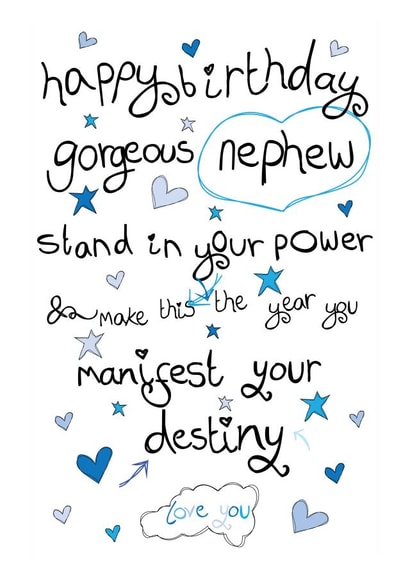 happy birthday
gorgeous nephew
stand in your power
& make this the year you
manifest your
destiny
love you